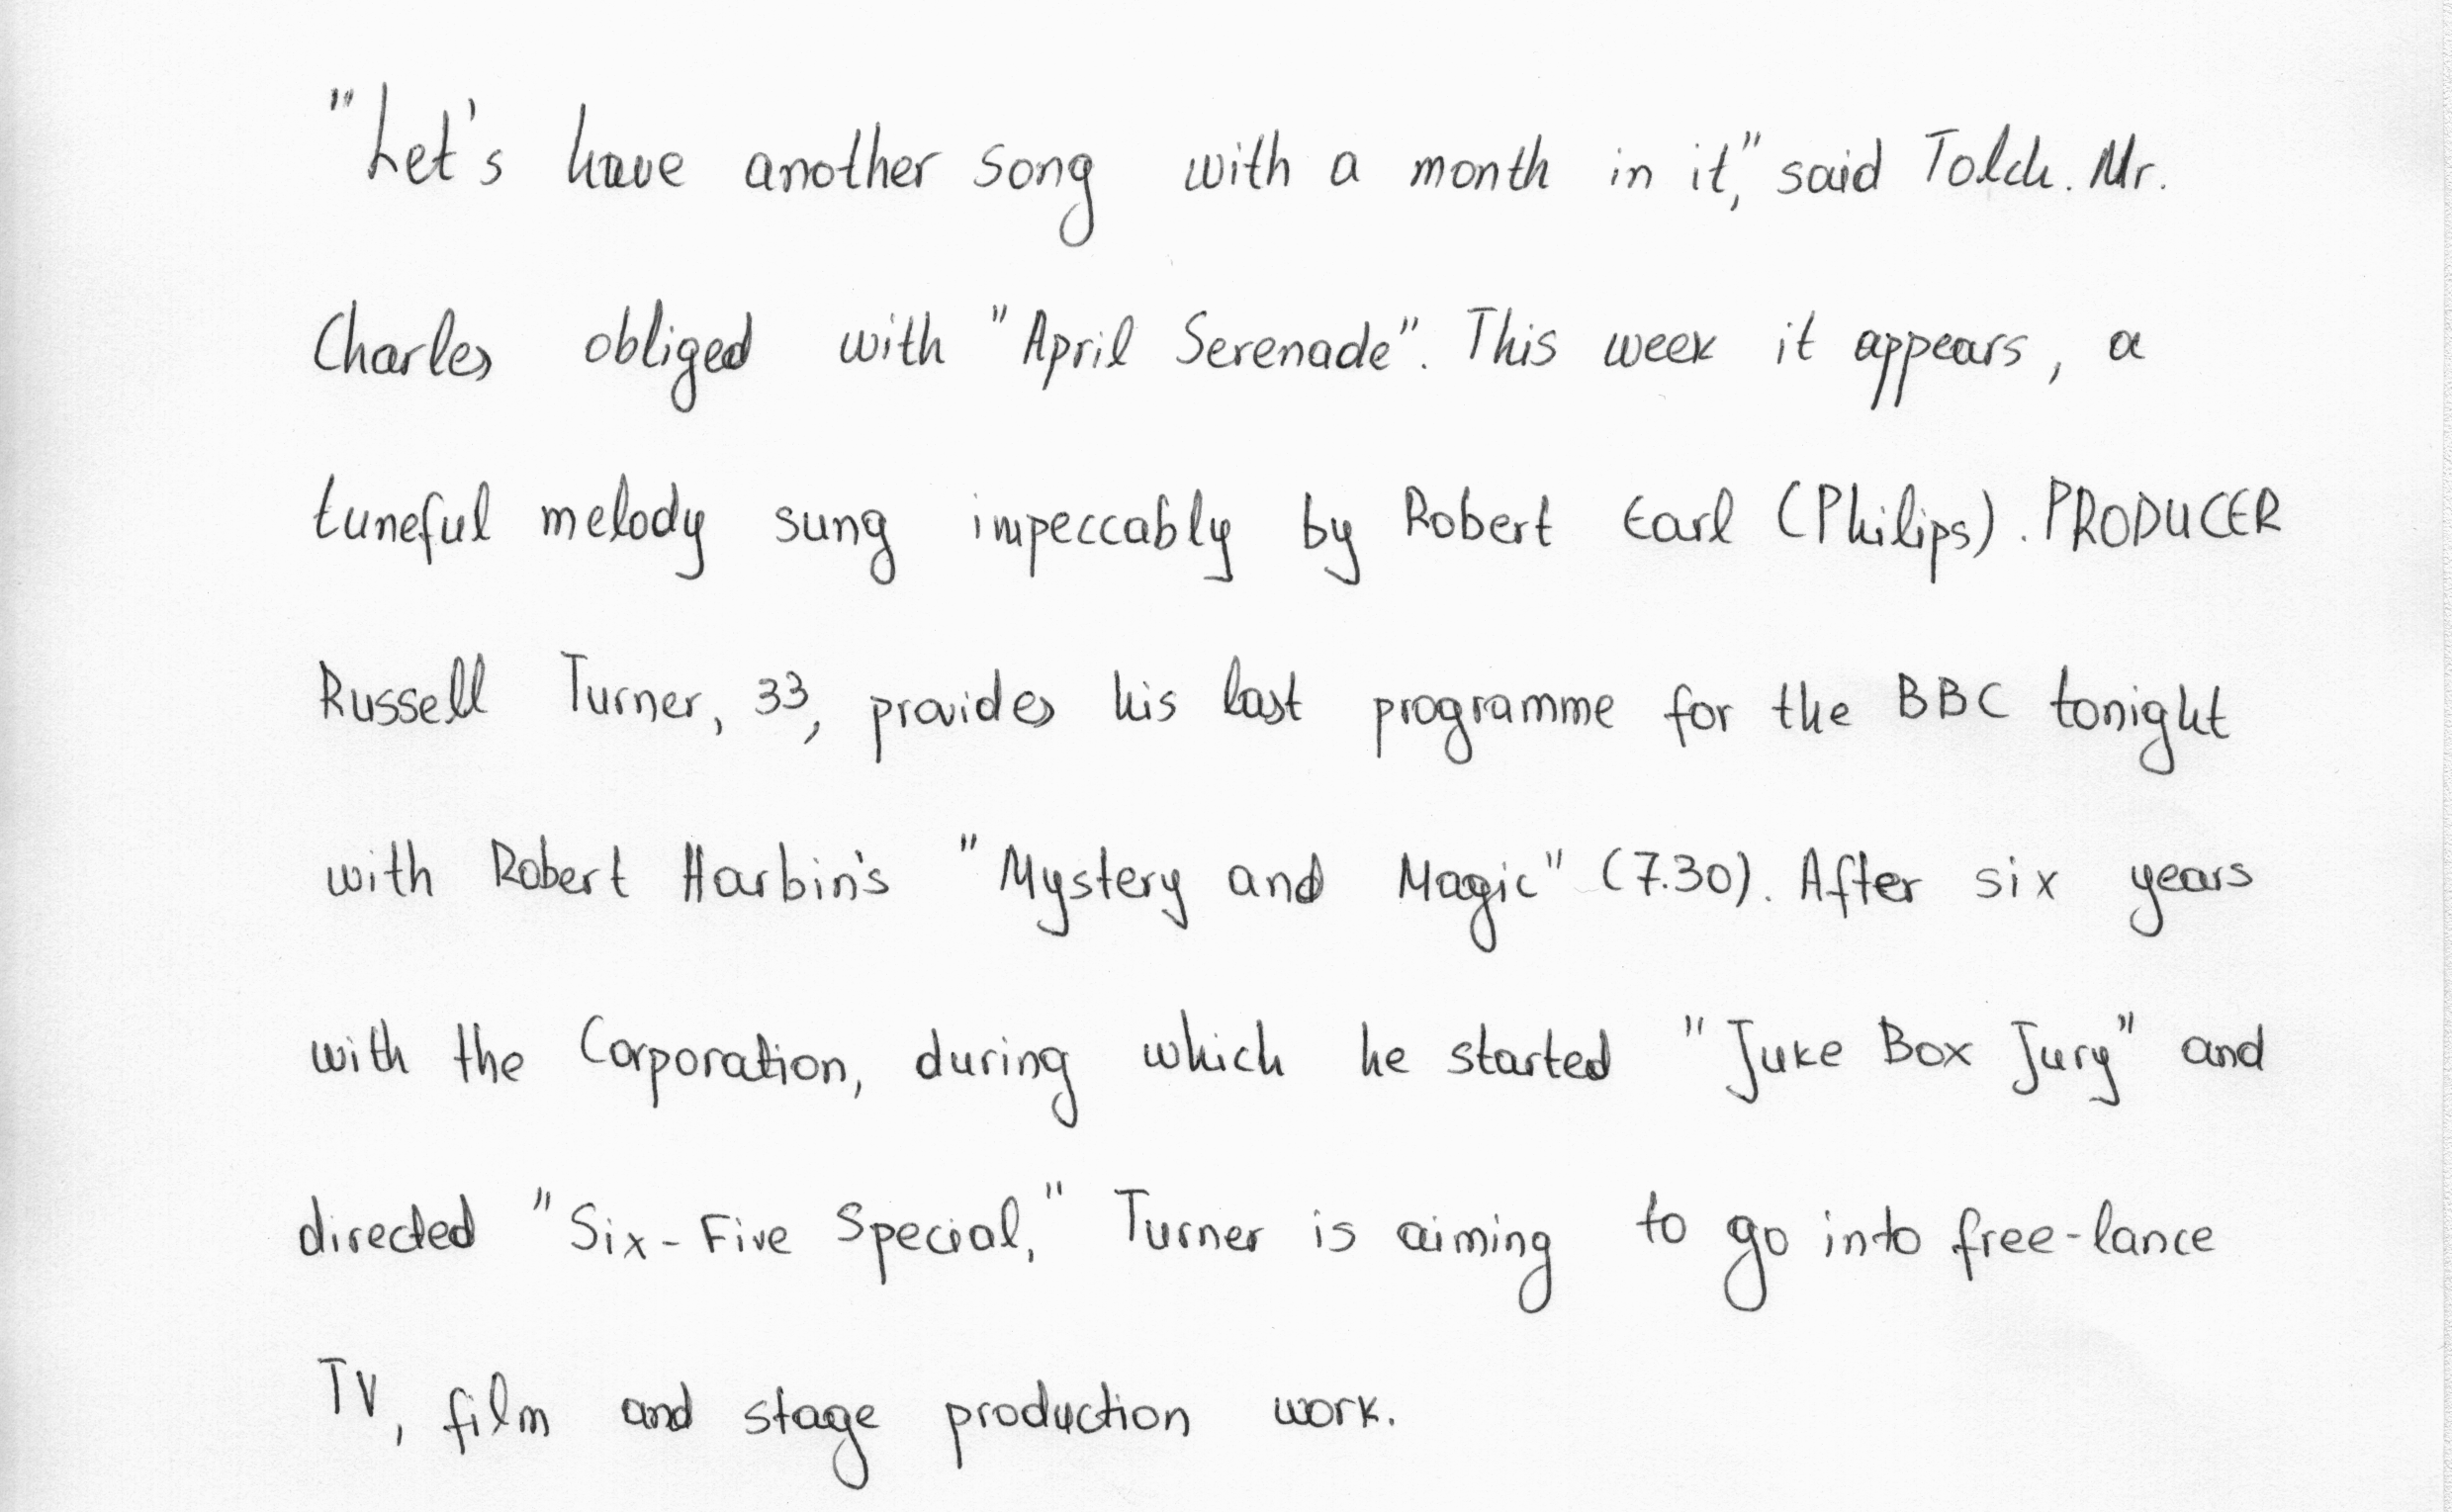 "Let's have another song with a month in it," said Tolch. Mr.
Charles obliged with "April Serenade". This week it appears, a
tuneful melody sung impeccably by Robert Earl (Philips). PRODUCER
Russell Turner, 33, provides his last programme for the BBC tonight
with Robert Harbin's "Mystery and Magic" (7.30). After six years
with the Corporation, during which he started "Juke Box Jury" and
directed "Six-Five Special," Turner is aiming to go into free-lance
TV, film and stage production work.